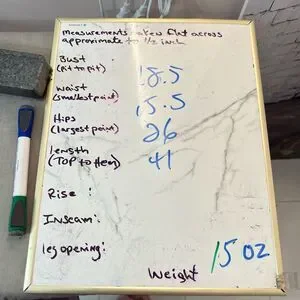 measurements taken flat across
approximate to 1/2 inch
Bust :
(Pit to pit) 18.5
waist
(smallest point) 15.5
Hips
(largest point) 26
length
(TOP to Hem) 41
Rise :
Inseam :
leg opening:
Weight 15 oz